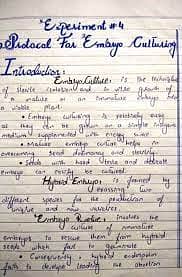 "Experiment #4
Protocol For Embryo Culturing
Introduction:
Embryo Culture: is the technique
of sterile isolation and in vitro growth of
a mature or an immature embryo into
a viable plant.
• Embryo culturing is relatively easy
as they can be grown on a simple inorganic
medium supplemented with energy source
• Mature embryo culture helps in
overcoming seed dormancy and sterility.
• Seeds with hard testa and
can be easily cultured.
Hybrid Embryo: is formed by
crossing two
different species for the production of
and new varieties.
"Embryo Rescue": involves the
culture of immature
embryos to rescue them from hybrid
seeds which fail to germinate
• Consequently, hybrid endosperm
fails to develop leading the abortion